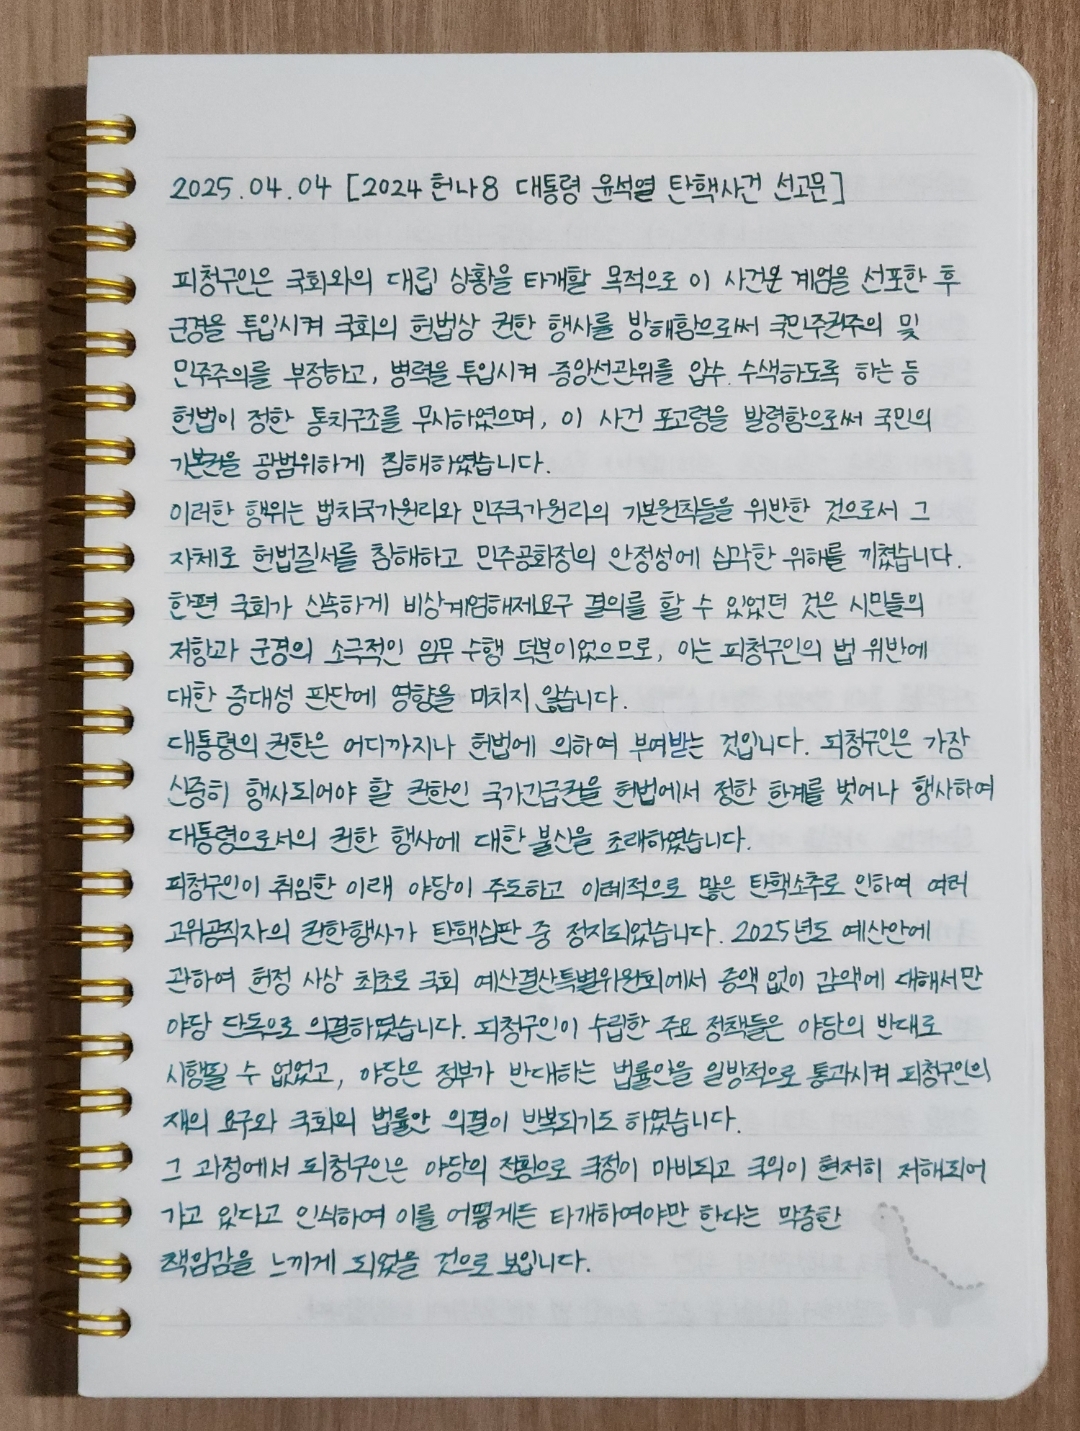 2025.04.04 [2024헌나8 대통령 윤석열 탄핵사건 선고문]
피청구인은 국회와의 대립 상황을 타개할 목적으로 이 사건본 계엄을 선포한 후
군경을 투입시켜 국회의 헌법상 권한 행사를 방해함으로써 국민주권주의 및
민주주의를 부정하고, 병력을 투입시켜 중앙선관위를 압수.수색하도록 하는 등
헌법이 정한 통치구조를 무시하였으며, 이 사건 포고령을 발령함으로써 국민의
기본권을 광범위하게 침해하였습니다.
이러한 행위는 법치국가원리와 민주국가원리의 기본원칙들을 위반한 것으로서 그
자체로 헌법질서를 침해하고 민주공화정의 안정성에 심각한 위해를 끼쳤습니다.
한편 국회가 신속하게 비상계엄해제요구 결의를 할 수 있었던 것은 시민들의
저항과 군경의 소극적인 임무 수행 덕분이었으므로, 이는 피청구인의 법 위반에
대한 중대성 판단에 영향을 미치지 않습니다.
대통령의 권한은 어디까지나 헌법에 의하여 부여받는 것입니다. 피청구인은 가장
신중히 행사되어야 할 권한인 국가긴급권을 헌법에서 정한 한계를 벗어나 행사하여
대통령으로서의 권한 행사에 대한 불신을 초래하였습니다.
피청구인이 취임한 이래 야당이 주도하고 이례적으로 많은 탄핵소추로 인하여 여러
고위공직자의 권한행사가 탄핵심판 중 정지되었습니다. 2025년도 예산안에
관하여 헌정 사상 최초로 국회 예산결산특별위원회에서 증액 없이 감액에 대해서만
야당 단독으로 의결하였습니다. 피청구인이 수립한 주요 정책들은 야당의 반대로
시행될 수 없었고, 야당은 정부가 반대하는 법률안을 일방적으로 통과시켜 피청구인의
재의 요구와 국회의 법률안 의결이 반복되기도 하였습니다.
그 과정에서 피청구인은 야당의 전횡으로 국정이 마비되고 국익이 현저히 저해되어
가고 있다고 인식하여 이를 어떻게든 타개하여야만 한다는 막중한
책임감을 느끼게 되었을 것으로 보입니다.